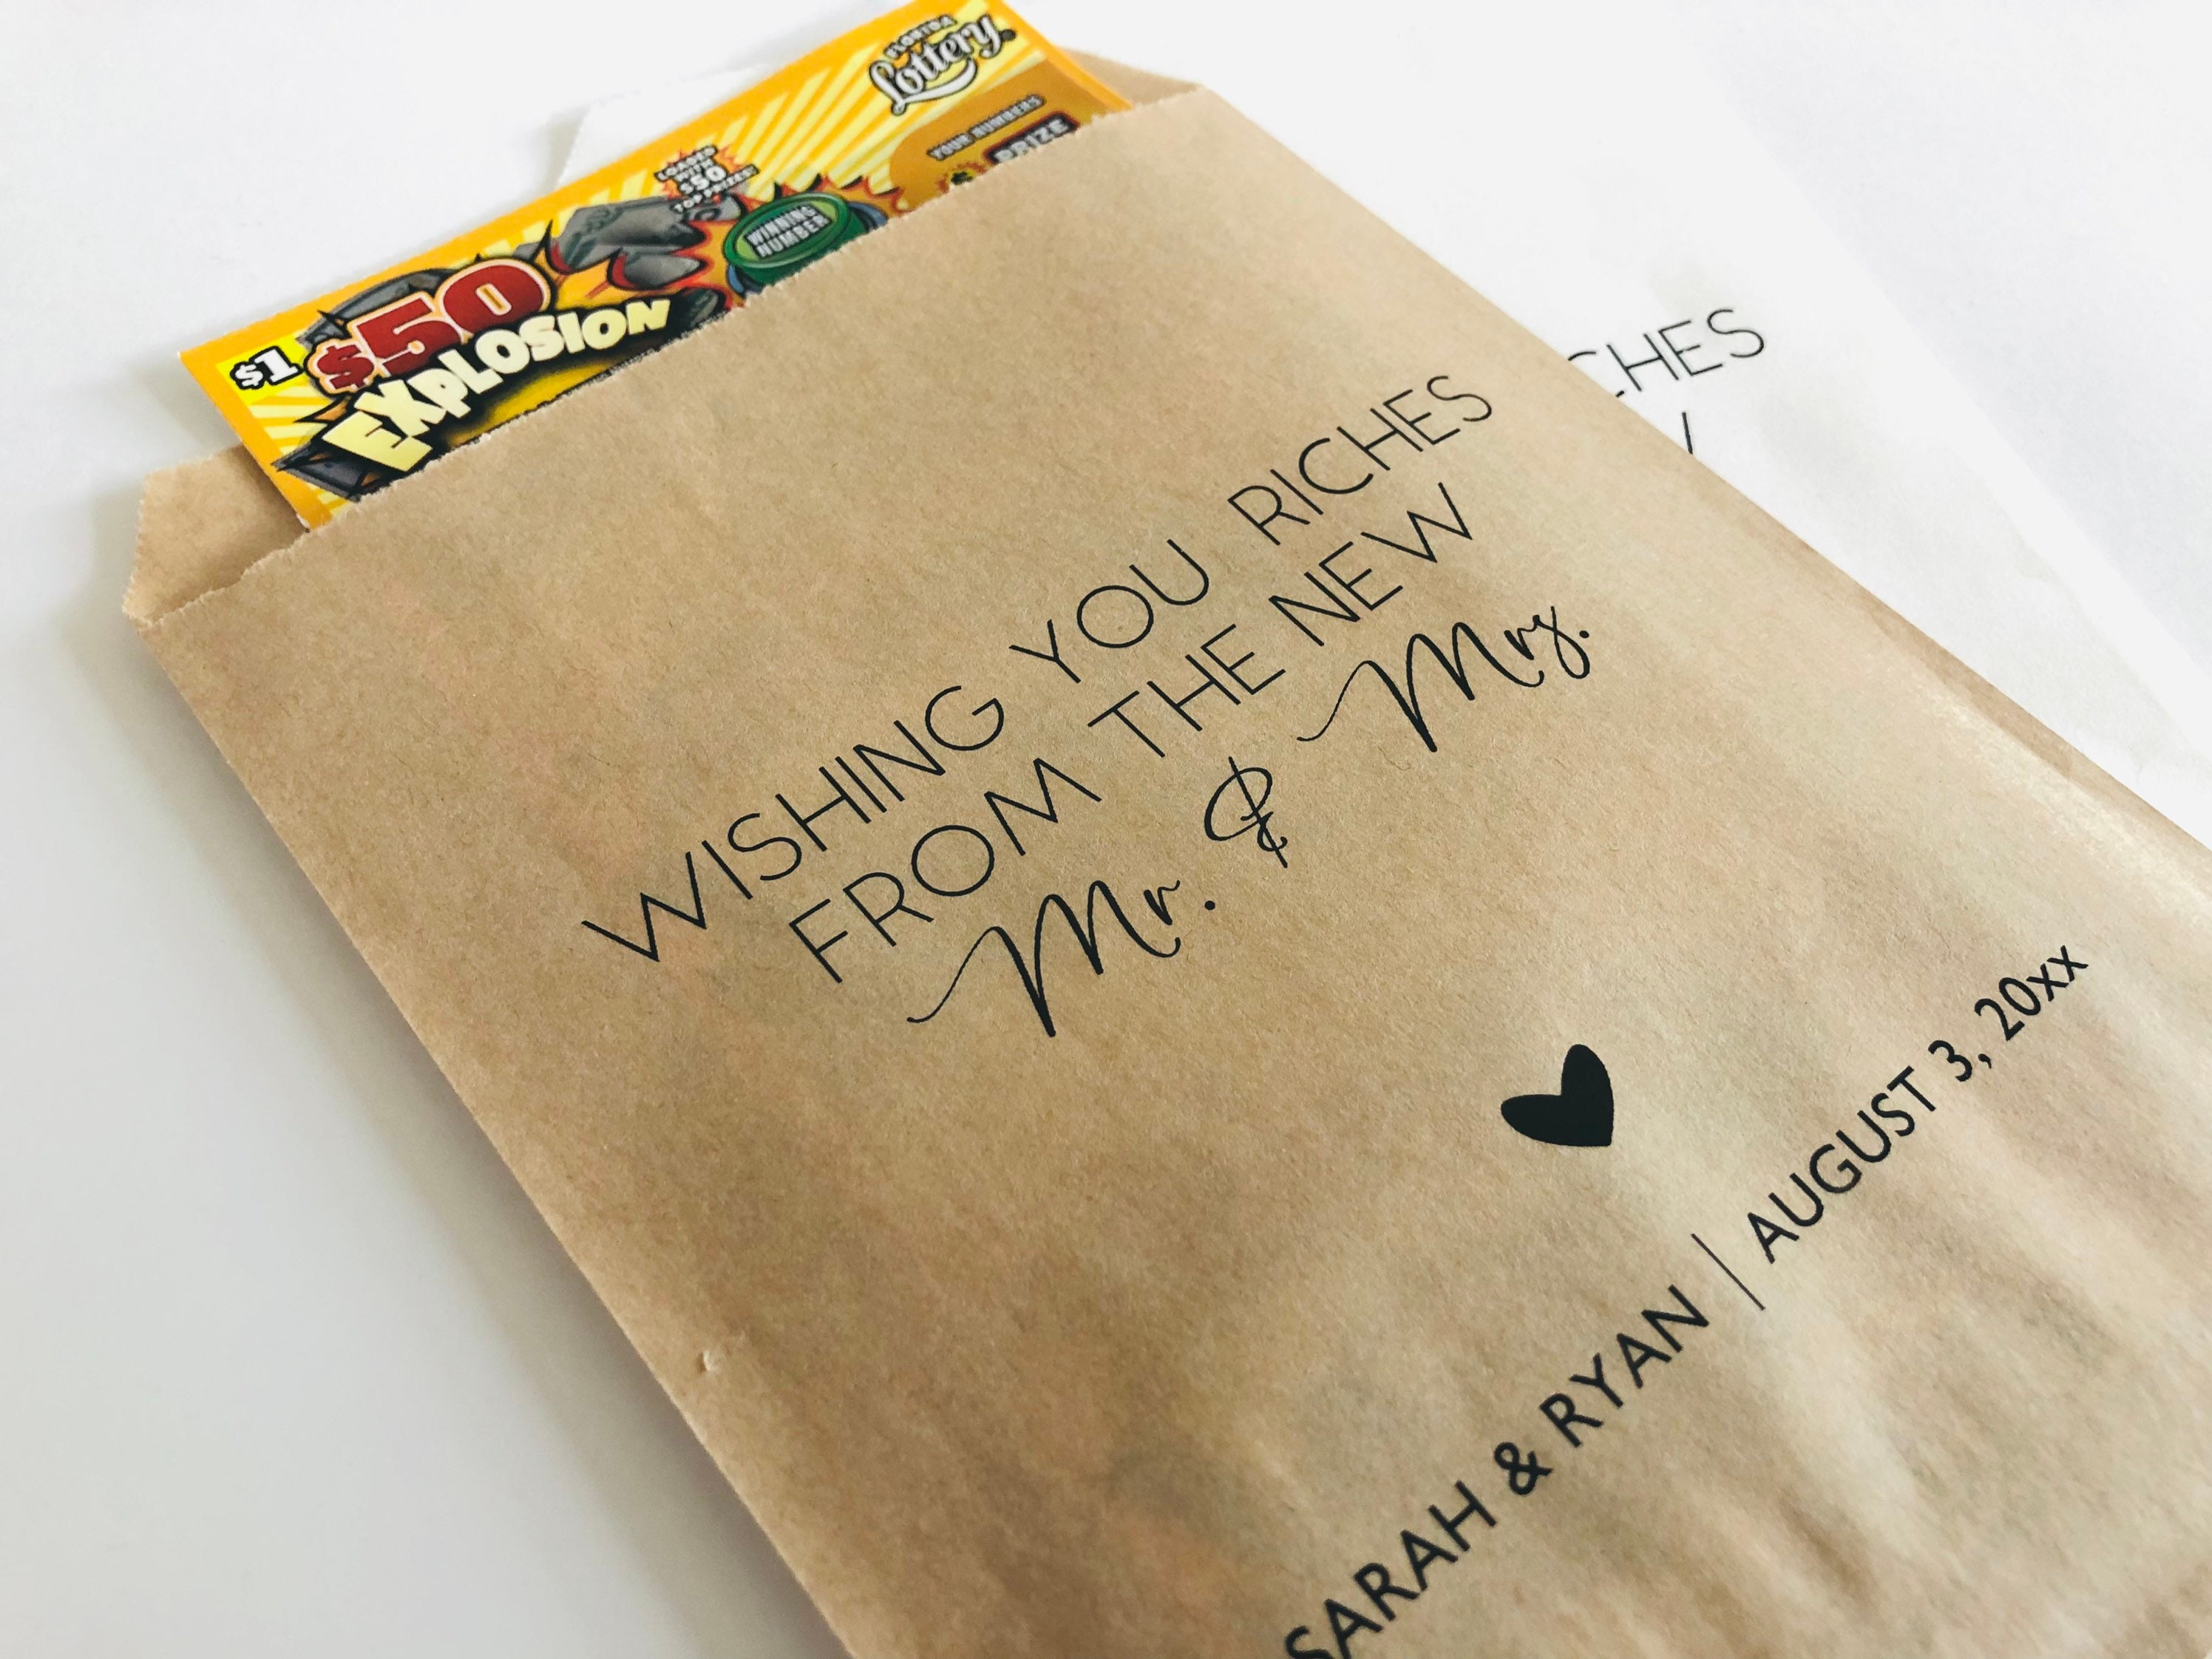 FLORIDA
Lottery
YOUR NUMBERS
PRIZE
LOADED
WITH
$50
TOP PRIZES!
WINNING
NUMBER
$1
$50
EXPLOSION
WISHING YOU RICHES
FROM THE NEW
Mr. & Mrs.
SARAH & RYAN | AUGUST 3, 20xx
CHES